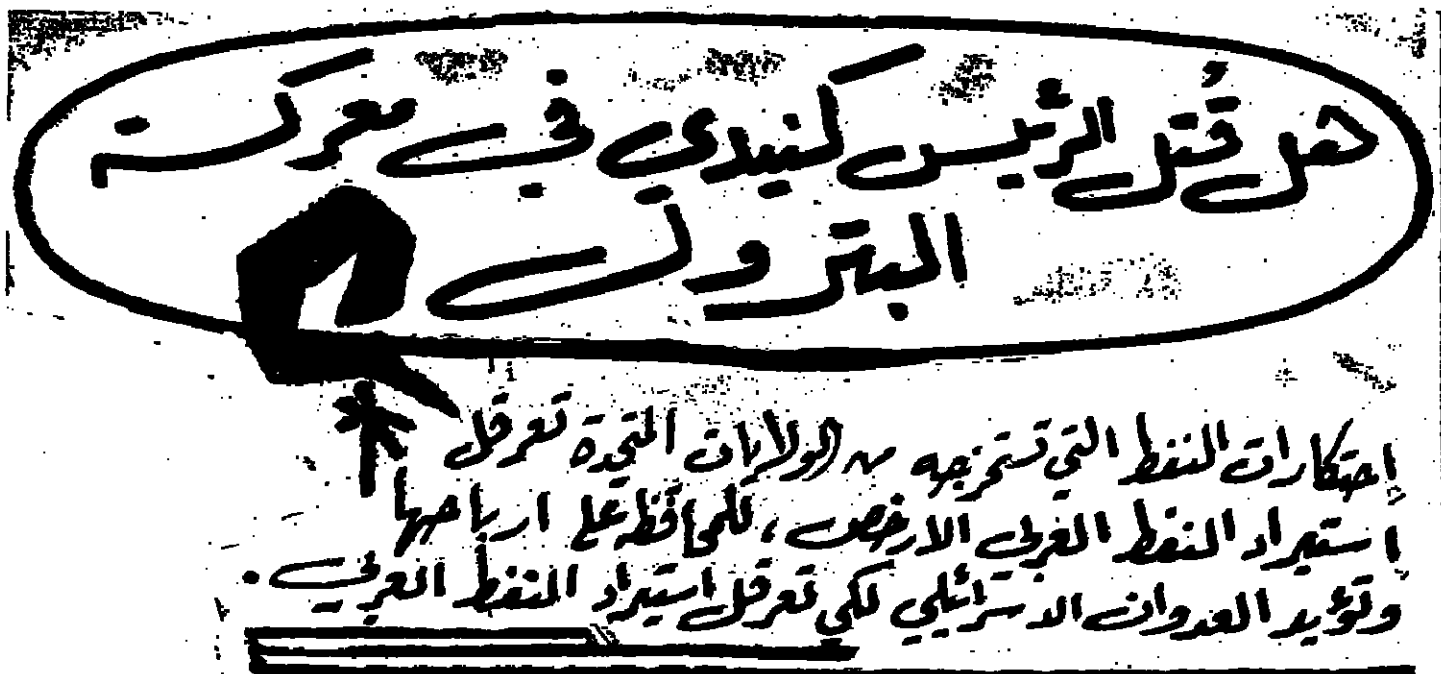 هل قُتل الرئيس كنيدي في معركة
البترول
إحتكارات النفط التي تستخرجه من الولايات المتحدة تعرقل
إستيراد النفط العربي الارخص، للمحافظة على ارباحها
وتؤيد العدوان الاسرائيلي لكي تعرقل استيراد النفط العربي.